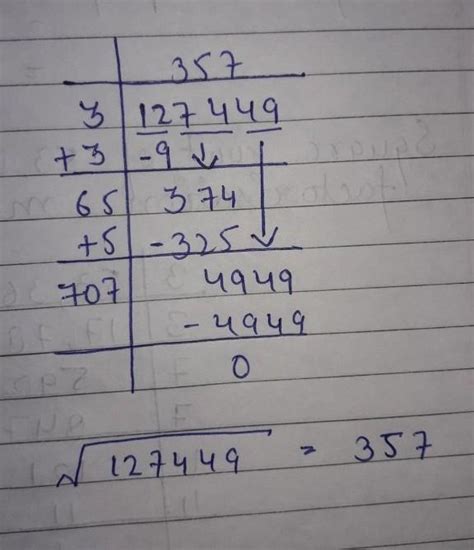 357
3 127449
+3 -9 ↓
65 374
+5 -325 ↓
707 4949
-4949
0
√127449 = 357